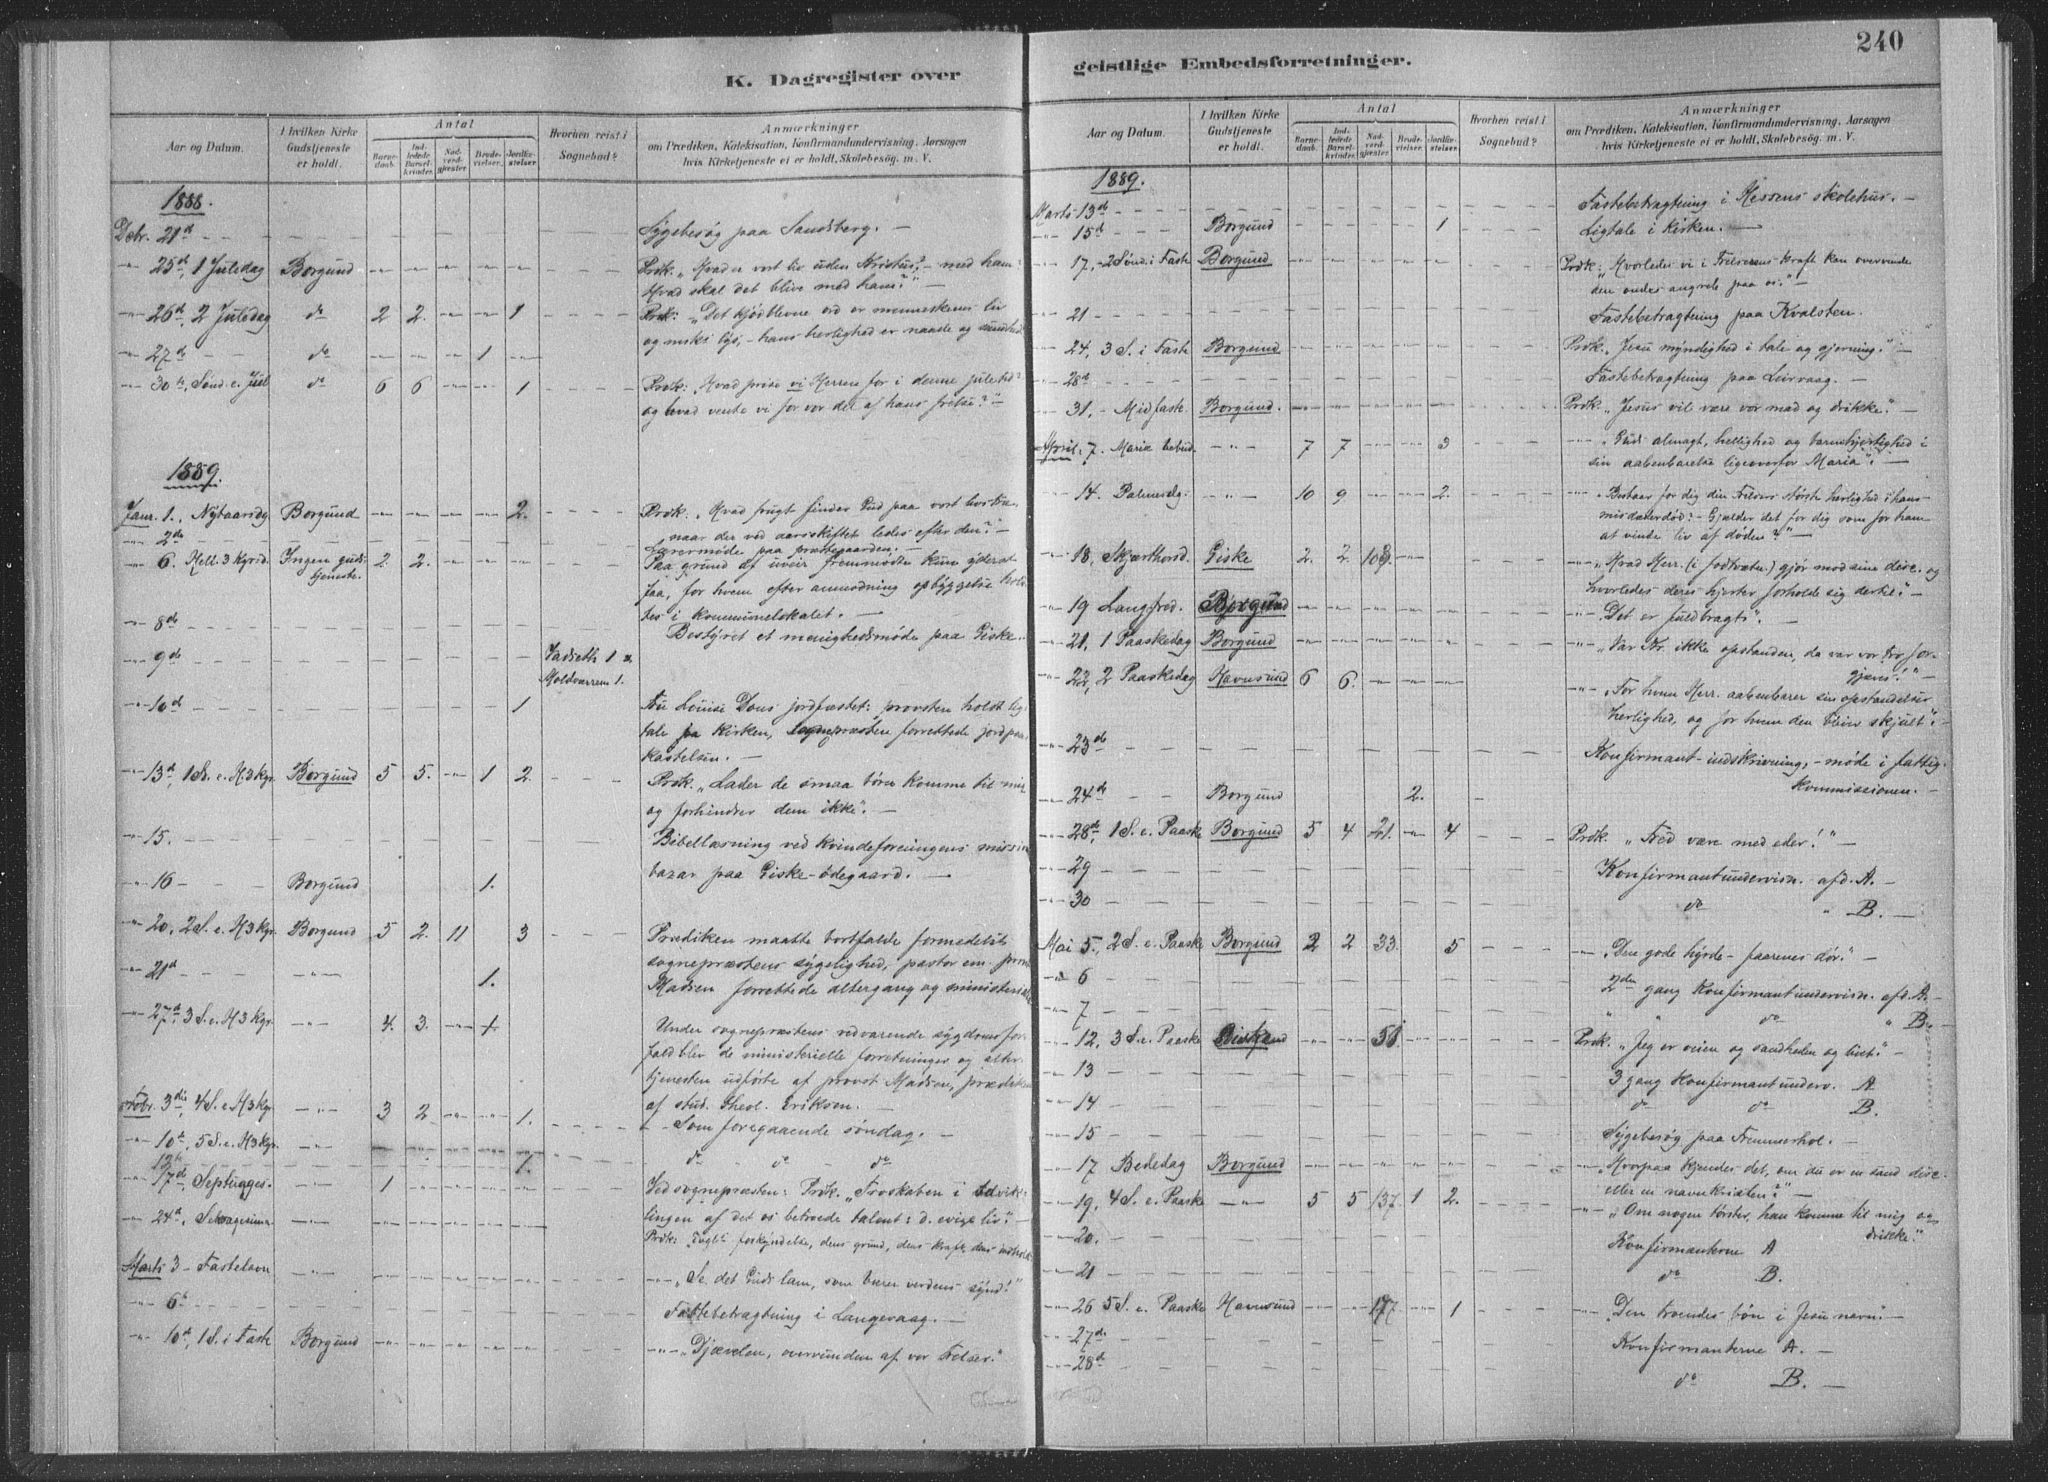 K. Dagregister over
Aar og Datum.
I hvilken Kirke Gudstjeneste er holdt.
Antal
Barnedaab.
Indledede Barselkvinder.
Nadverdgjæster.
Brudevielser.
Jordfæstelser.
Hvorhen reist i Sognebud?
Anmærkninger
om Prædiken, Katekisation, Konfirmandundervisning, Aarsagen
hvis Kirketjeneste ei er holdt, Skolebesög m. V.
1888.
Debr. 21d Sygebesøg paa Sandsberg. —
" 25d, 1 Juledag Borgund Prdk: „Hvad er vort liv uden Kristus? – med ham?
Hvad skal det blive med ham?" –
" 26d, 2 Juledag do 2 2. 1 Prdk: „Det kjødblevne ord er menneskenes liv
og lys, – hans herlighed er naade og sandhed
" 27d do 1
" 30te, Sønd. e. Jul do 6 6 1 Prdk: „Hvad prise vi Herren for i denne juletid?
og hvad vente vi for vor del af hans frelse?" –
1889.
Janr. 1., Nytaarsdg Borgund 2. Prdk: „Hvad frugt finder Gud paa vort livstræ,
naar der ved aarsskiftet ledes efter den?" –
" 2de Lærermøde paa prestegaarden. –
" 6. Hell. 3 Kgrsd. Ingen gudstjeneste. 2 2. Paa grund af uveir fremmødte kun yderst
faa, for hvem efter anmodning opbyggelse holdtes
i kommunelokalet. –
" 8de Bestyret et menighedsmøde paa Giske. –
" 9de 1 Moldværren 1.
" 10de 1 Fru Louise Dons jordfæstet: provsten holdt ligtale
fra kirken, sognepræsten forrettede jordpaakastelsen. –
" 13d, 1 S. e. H3Kgr. Borgund 5 5. 1 2. Prdk. „Lader de smaa børn komme til mig
og forhindrer dem ikke". –
" 15. Bibellæsning ved kvindeforeningens missionsbazar
paa Giske-ødegaard. –
" 16 – Borgund 1.
" 20, 2 S. e. H3Kgr. Borgund 5 2. 11 3 Prædiken maatte bortfalde formedelst
sognepræstens sygelighed, pastor em.
" 21d 1. Madsen forrettede altergang og
" 27d, 3 S. e. H3Kgr. 4. 3. Under sognepræstens vedvarende sygdomsforfald
blev de ministerielle forretninger og altertjenesten
udførte af provst Madsen, prædiken
Febr. 3die, 4 S. e. H3Kgr. 3 2 1. af stud. theol. Eriksen. –
– Som foregaaende søndag. –
" 10d, 5 S. e. H3Kgr. do " do do
13de 1.
" 17d, Septuages. 1 Ved sognepræsten: Prdk. „Troskaben i udviklingen
af det os betroede talent: d. evige liv". –
" 24d, Sexagesima Prdk: forkyndelse, dens grund, dens kraft, dens
Marts 3 – Fastelavn „Se det Guds lam, som bærer verdens synd!"
" 6te Fastebetragtning i Langevaag. –
" 10d, 1 S. i Faste Borgund „Djævelen, overvunden af vor Frelser."
240
geistlige Embedsforretninger.
Aar og Datum.
I hvilken Kirke Gudstjeneste er holdt.
Antal
Barnedaab.
Indledede Barselkvinder.
Nadverdgjæster.
Brudevielser.
Jordfæstelser.
Hvorhen reist i Sognebud?
Anmærkninger
om Prædiken, Katekisation, Konfirmandundervisning, Aarsagen
hvis Kirketjeneste ei er holdt, Skolebesög m. V.
1889.
Marts 13de Fastebetragtning i Hessens skolehus. –
" 15d Borgund 1 Ligtale i kirken. –
" 17, – 2 Sønd. i Faste Borgund Prdk: „Hvorledes vi i Frelserens kraft kan overvinde
den ondes angreb paa os." –
" 21 Fastebetragtning paa Kvalsten.
" 24, 3 S. i Faste Borgund Prdk. „Jesu myndighed i tale og gjerning." –
" 28d Fastebetragtning paa Leirvaag. –
" 31, – Midfaste Borgund. Prdk. „Jesus vil være vor mad og drikke." –
April 7. Mariæ bebud. 7 7 3 „Guds almagt, hellighed og barmhjertighed i
sin aabenbarelse ligeoverfor Maria". –
" 14. Palmesøg. 10 9 2. „Bestaar for dig din Frelsers største herlighed i hans
misdæderdød? – Gjælder det for dig som for ham
at vinde liv af døden?" –
" 18, Skjærthorsd. Giske 2. 2. 108. „Hvad Herr. (i fodtvætn.) gjør mod sine disc. og
hvorledes deres hjerter forholde sig dertil". –
" 19 Langfred. Borgund „Det er fuldbragt". –
" 21, 1 Paaskedag Borgund „Var Kr. ikke opstanden, da var vor tro forgjæves". –
" 22, 2 Paaskedag Havnsund 6 6. „For hvem Herr. aabenbarer sin opstandelsesherlighed,
og for hvem den bliver skjult". –
" 23de Konfirmant-indskrivning, – møde i fattigkommissionen. –
" 24de Borgund 2.
" 28de, 1 S. e. Paaske Borgund 5 4 21. 4 Prdk. „Fred være med eder!" –
" 29 Konfirmantundervisn. afd. A. –
" 30 do " B. –
Mai 5., 2 S. e. Paaske Borgund 2 2 33. 5 „Den gode hyrde – faarenes dør." –
" 6 2den gang Konfirmantundervisn. afd. A. –
" 7 " " do " B. –
" 12, 3 S. e. Paaske Prdk. „Jeg er veien og sandheden og livet." –
" 13 3 gang Konfirmantunderv. A
" 14 do do B.
" 15 Sygebesøg paa Fremmerhol. –
" 17 Bededag Borgund „Hvorpaa kjendes det, om du er en sand disc.
eller en navnkristen?" –
" 19, 4 S. e. Paaske 5 5 137. 1 2. „Om nogen tørster, han komme til mig og
drikke."
" 20. Konfirmanterne A
" 21 do B.
" 26 5 S. e. Paaske Havnsund 177. 1 „Den troendes bøn i Jesu navn". –
" 27de Konfirmanterne A. –
" 28d do B. –